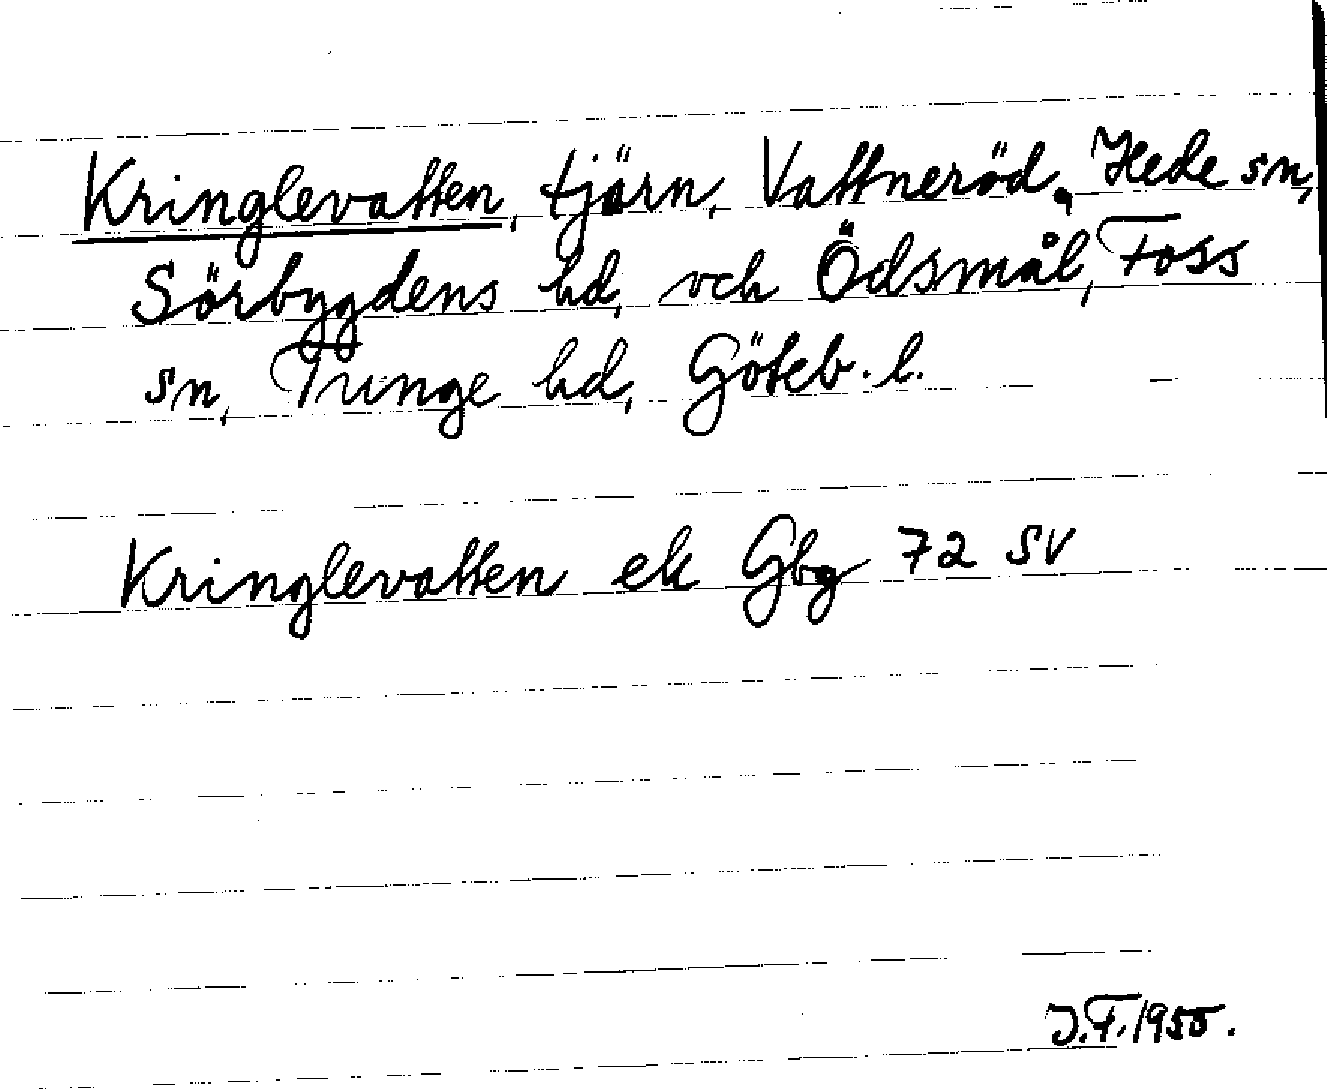 Kringlevatten, tjärn, Vattneröd, Hede sn,
Sörbygdens hd, och Ödsmål, Foss
sn, Tunge hd, Göteb. l.
Kringlevatten ek Gbg 72 SV
J.F. 1955.